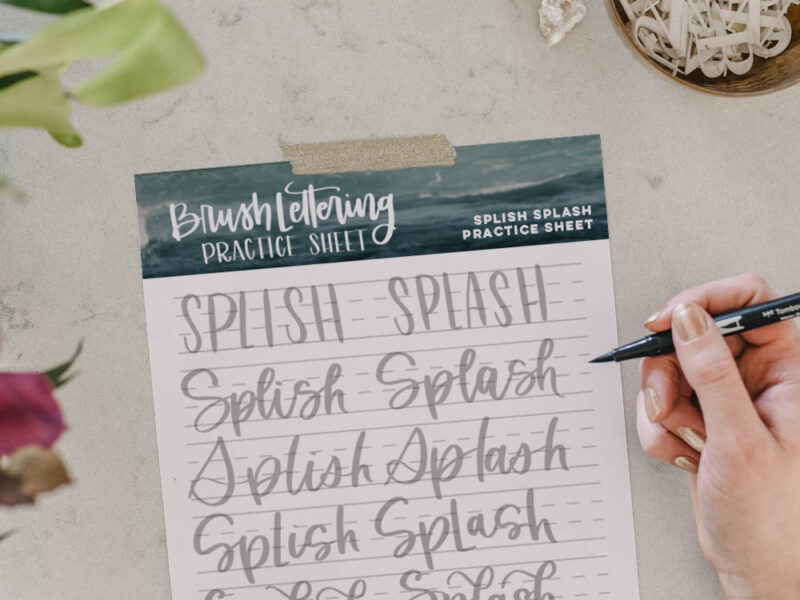 Brush Lettering
PRACTICE SHEET
SPLISH SPLASH
PRACTICE SHEET
SPLISH SPLASH
Splish Splash
Splish Splash
Splish Splash
Splish Splash
Tombo